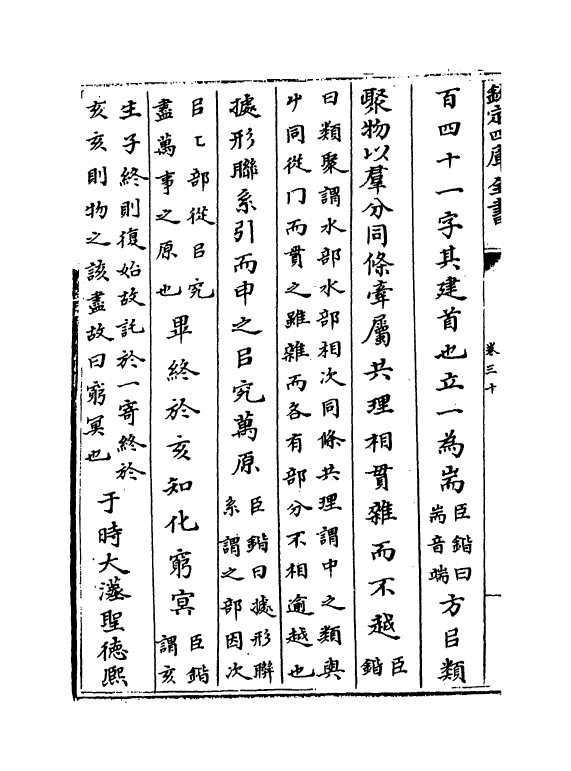 欽定四庫全書
卷三十
百四十一字其建首也立一為耑
臣鍇曰
耑音端
方㠯類
聚物以羣分同條牽屬共理相貫雜而不越
臣
鍇
曰類聚謂水部水部相次同條共理謂中之類與
屮同從门而貫之雖雜而各有部分不相逾越也
據形聯系引而申之㠯究萬原
臣鍇曰據形聯
系謂之部因次
㠯乙部從㠯究
盡萬事之原也
畢終於亥知化窮冥
臣鍇
謂亥
生子終則復始故託於一寄終於
亥亥則物之該盡故曰窮冥也
于時大漢聖德熙